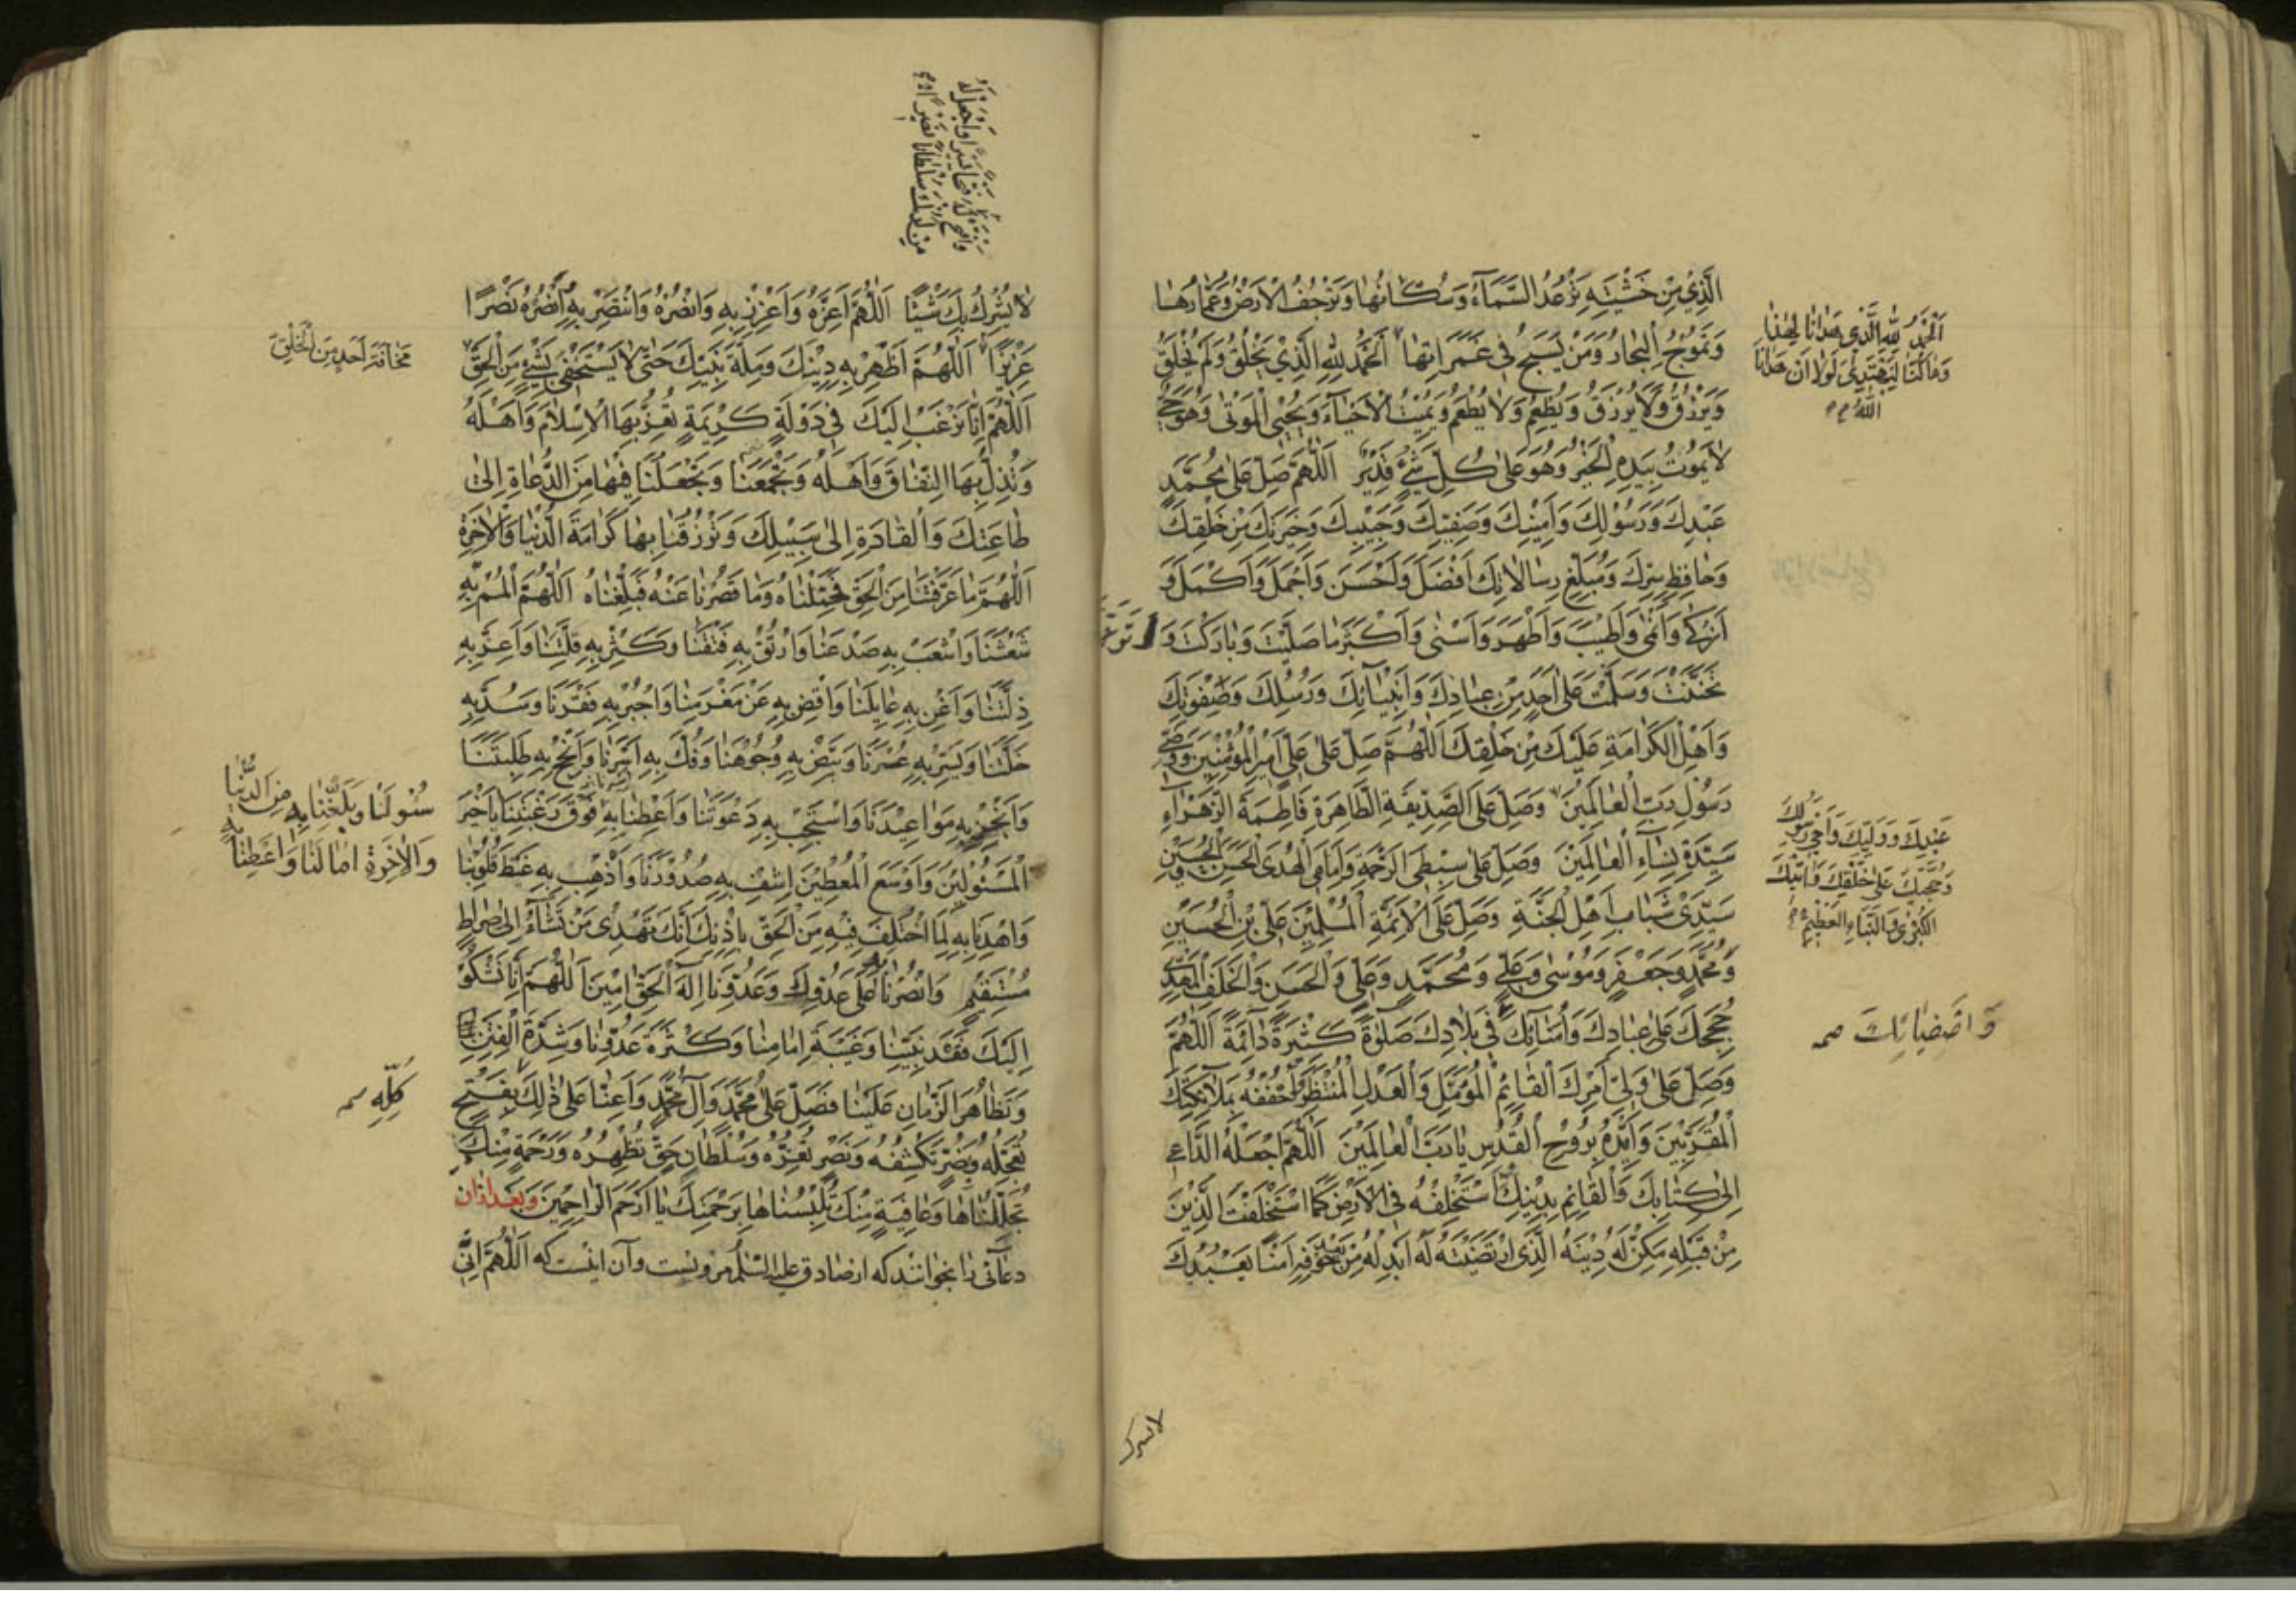 الَّذِي مِنْ خَشْيَتِهِ تَرْعُدُ السَّمَآءُ وَسُكَّانُهَا وَتَرْجُفُ الْأَرْضُ وَعُمَّارُهَا
وَتَمُوْجُ الْبِحَارُ وَمَنْ يَسْبَحُ فِي غَمَرَاتِهَا اَلْحَمْدُ لِلّٰهِ الَّذِيْ يَخْلُقُ وَلَمْ يُخْلَقْ
وَيَرْزُقُ وَلَا يُرْزَقُ وَيُطْعِمُ وَلَا يُطْعَمُ وَيُمِيْتُ الْأَحْيَآءَ وَيُحْيِي الْمَوْتٰى وَهُوَ حَيٌّ
لَا يَمُوْتُ بِيَدِهِ الْخَيْرُ وَهُوَ عَلٰى كُلِّ شَيْءٍ قَدِيْرٌ اَللّٰهُمَّ صَلِّ عَلٰى مُحَمَّدٍ
عَبْدِكَ وَرَسُوْلِكَ وَاَمِيْنِكَ وَصَفِيِّكَ وَحَبِيْبِكَ وَخِيَرَتِكَ مِنْ خَلْقِكَ
وَحَافِظِ سِرِّكَ وَمُبَلِّغِ رِسَالَاتِكَ اَفْضَلَ وَاَحْسَنَ وَاَجْمَلَ وَاَكْمَلَ وَ
اَزْكٰى وَاَنْمٰى وَاَطْيَبَ وَاَطْهَرَ وَاَسْنٰى وَاَكْثَرَ مَا صَلَّيْتَ وَبَارَكْتَ وَ
تَحَنَّنْتَ وَسَلَّمْتَ عَلٰى اَحَدٍ مِنْ عِبَادِكَ وَاَنْبِيَآئِكَ وَرُسُلِكَ وَصِفْوَتِكَ
وَاَهْلِ الْكَرَامَةِ عَلَيْكَ مِنْ خَلْقِكَ اَللّٰهُمَّ صَلِّ عَلٰى عَلِيٍّ اَمِيْرِ الْمُؤْمِنِيْنَ وَوَصِيِّ
رَسُوْلِ رَبِّ الْعَالَمِيْنَ وَصَلِّ عَلَى الصِّدِّيْقَةِ الطَّاهِرَةِ فَاطِمَةَ الزَّهْرَآءِ
سَيِّدَةِ نِسَآءِ الْعَالَمِيْنَ وَصَلِّ عَلٰى سِبْطَيِ الرَّحْمَةِ وَاِمَامَيِ الْهُدَى الْحَسَنِ وَالْحُسَيْنِ
سَيِّدَيْ شَبَابِ اَهْلِ الْجَنَّةِ وَصَلِّ عَلٰى اَئِمَّةِ الْمُسْلِمِيْنَ عَلِيِّ بْنِ الْحُسَيْنِ
وَمُحَمَّدٍ وَجَعْفَرٍ وَمُوْسٰى وَعَلِيٍّ وَمُحَمَّدٍ وَعَلِيٍّ وَالْحَسَنِ وَالْخَلَفِ الْمَهْدِيِّ
حُجَجِكَ عَلٰى عِبَادِكَ وَاُمَنَآئِكَ فِي بِلَادِكَ صَلٰوةً كَثِيْرَةً دَآئِمَةً اَللّٰهُمَّ
وَصَلِّ عَلٰى وَلِيِّ اَمْرِكَ الْقَائِمِ الْمُؤَمَّلِ وَالْعَدْلِ الْمُنْتَظَرِ وَاحْفُفْهُ بِمَلَآئِكَتِكَ
الْمُقَرَّبِيْنَ وَاَيِّدْهُ بِرُوْحِ الْقُدُسِ يَا رَبَّ الْعَالَمِيْنَ اَللّٰهُمَّ اجْعَلْهُ الدَّاعِيَ
اِلٰى كِتَابِكَ وَالْقَائِمَ بِدِيْنِكَ اسْتَخْلِفْهُ فِي الْأَرْضِ كَمَا اسْتَخْلَفْتَ الَّذِيْنَ
مِنْ قَبْلِهِ مَكِّنْ لَهُ دِيْنَهُ الَّذِي ارْتَضَيْتَهُ لَهُ اَبْدِلْهُ مِنْ بَعْدِ خَوْفِهِ اَمْنًا يَعْبُدُكَ
اَلْحَمْدُ لِلّٰهِ الَّذِي هَدَانَا لِهٰذَا
وَمَا كُنَّا لِنَهْتَدِيَ لَوْلَا اَنْ هَدَانَا
اللّٰهُ
عَبْدِكَ وَوَلِيِّكَ وَاَخِي رَسُوْلِكَ
وَحُجَّتِكَ عَلٰى خَلْقِكَ وَاٰيَتِكَ
الْكُبْرٰى وَالنَّبَاءِ الْعَظِيْمِ
لا يشرك
لَا يُشْرِكُ بِكَ شَيْئًا اَللّٰهُمَّ اَعِزَّهُ وَاَعْزِزْ بِهِ وَانْصُرْهُ وَانْتَصِرْ بِهِ اُنْصُرْهُ نَصْرًا
عَزِيْزًا اَللّٰهُمَّ اَظْهِرْ بِهِ دِيْنَكَ وَمِلَّةَ نَبِيِّكَ حَتّٰى لَا يَسْتَخْفِيَ بِشَيْءٍ مِنَ الْحَقِّ
اَللّٰهُمَّ اِنَّا نَرْغَبُ اِلَيْكَ فِي دَوْلَةٍ كَرِيْمَةٍ تُعِزُّ بِهَا الْإِسْلَامَ وَاَهْلَهُ
وَتُذِلُّ بِهَا النِّفَاقَ وَاَهْلَهُ وَتَجْمَعُنَا وَتَجْعَلُنَا فِيْهَا مِنَ الدُّعَاةِ اِلٰى
طَاعَتِكَ وَالْقَادَةِ اِلٰى سَبِيْلِكَ وَتَرْزُقُنَا بِهَا كَرَامَةَ الدُّنْيَا وَالْاٰخِرَةِ
اَللّٰهُمَّ مَا عَرَّفْتَنَا مِنَ الْحَقِّ فَحَمِّلْنَاهُ وَمَا قَصُرْنَا عَنْهُ فَبَلِّغْنَاهُ اَللّٰهُمَّ الْمُمْ بِهِ
شَعَثَنَا وَاشْعَبْ بِهِ صَدْعَنَا وَارْتُقْ بِهِ فَتْقَنَا وَكَثِّرْ بِهِ قِلَّتَنَا وَاَعِزَّ بِهِ
ذِلَّتَنَا وَاَغْنِ بِهِ عَايِلَنَا وَاقْضِ بِهِ عَنْ مَغْرَمِنَا وَاجْبُرْ بِهِ فَقْرَنَا وَسُدَّ بِهِ
خَلَّتَنَا وَيَسِّرْ بِهِ عُسْرَنَا وَبَيِّضْ بِهِ وُجُوْهَنَا وَفُكَّ بِهِ اَسْرَنَا وَاَنْجِحْ بِهِ طَلِبَتَنَا
وَاَنْجِزْ بِهِ مَوَاعِيْدَنَا وَاسْتَجِبْ بِهِ دَعْوَتَنَا وَاَعْطِنَا بِهِ فَوْقَ رَغْبَتِنَا يَا خَيْرَ
الْمَسْئُوْلِيْنَ وَاَوْسَعَ الْمُعْطِيْنَ اِشْفِ بِهِ صُدُوْرَنَا وَاَذْهِبْ بِهِ غَيْظَ قُلُوْبِنَا
وَاهْدِنَا بِهِ لِمَا اخْتُلِفَ فِيْهِ مِنَ الْحَقِّ بِاِذْنِكَ اِنَّكَ تَهْدِيْ مَنْ تَشَآءُ اِلٰى صِرَاطٍ
مُسْتَقِيْمٍ وَانْصُرْنَا عَلٰى عَدُوِّكَ وَعَدُوِّنَا اِلٰهَ الْحَقِّ اٰمِيْنَ اَللّٰهُمَّ اِنَّا نَشْكُوْ
اِلَيْكَ فَقْدَ نَبِيِّنَا وَغَيْبَةَ اِمَامِنَا وَكَثْرَةَ عَدُوِّنَا وَشِدَّةَ الْفِتَنِ
وَتَظَاهُرَ الزَّمَانِ عَلَيْنَا فَصَلِّ عَلٰى مُحَمَّدٍ وَاٰلِ مُحَمَّدٍ وَاَعِنَّا عَلٰى ذٰلِكَ بِفَتْحٍ
تُعَجِّلُهُ وَبِضُرٍّ تَكْشِفُهُ وَنَصْرٍ تُعِزُّهُ وَسُلْطَانِ حَقٍّ تُظْهِرُهُ وَرَحْمَةٍ مِنْكَ
تُجَلِّلُنَاهَا وَعَافِيَةٍ مِنْكَ تُلْبِسُنَاهَا بِرَحْمَتِكَ يَا اَرْحَمَ الرَّاحِمِيْنَ وبعد از ان
دعائى را بخوانند كه از صادق عليه السلام مرويست وآن اينست كه اَللّٰهُمَّ اِنِّي
وَافْتَحْ لَهُ فَتْحًا يَسِيْرًا وَاجْعَلْ لَهُ
مِنْ لَدُنْكَ سُلْطَانًا نَصِيْرًا
مَخَافَةَ اَحَدٍ مِنَ الْخَلْقِ
سُئُولَنَا وَبَلِّغْنَا بِهِ مِنَ الدُّنْيَا
وَالْاٰخِرَةِ اٰمَالَنَا وَاَعْطِنَا بِهِ
كُلِّهِ